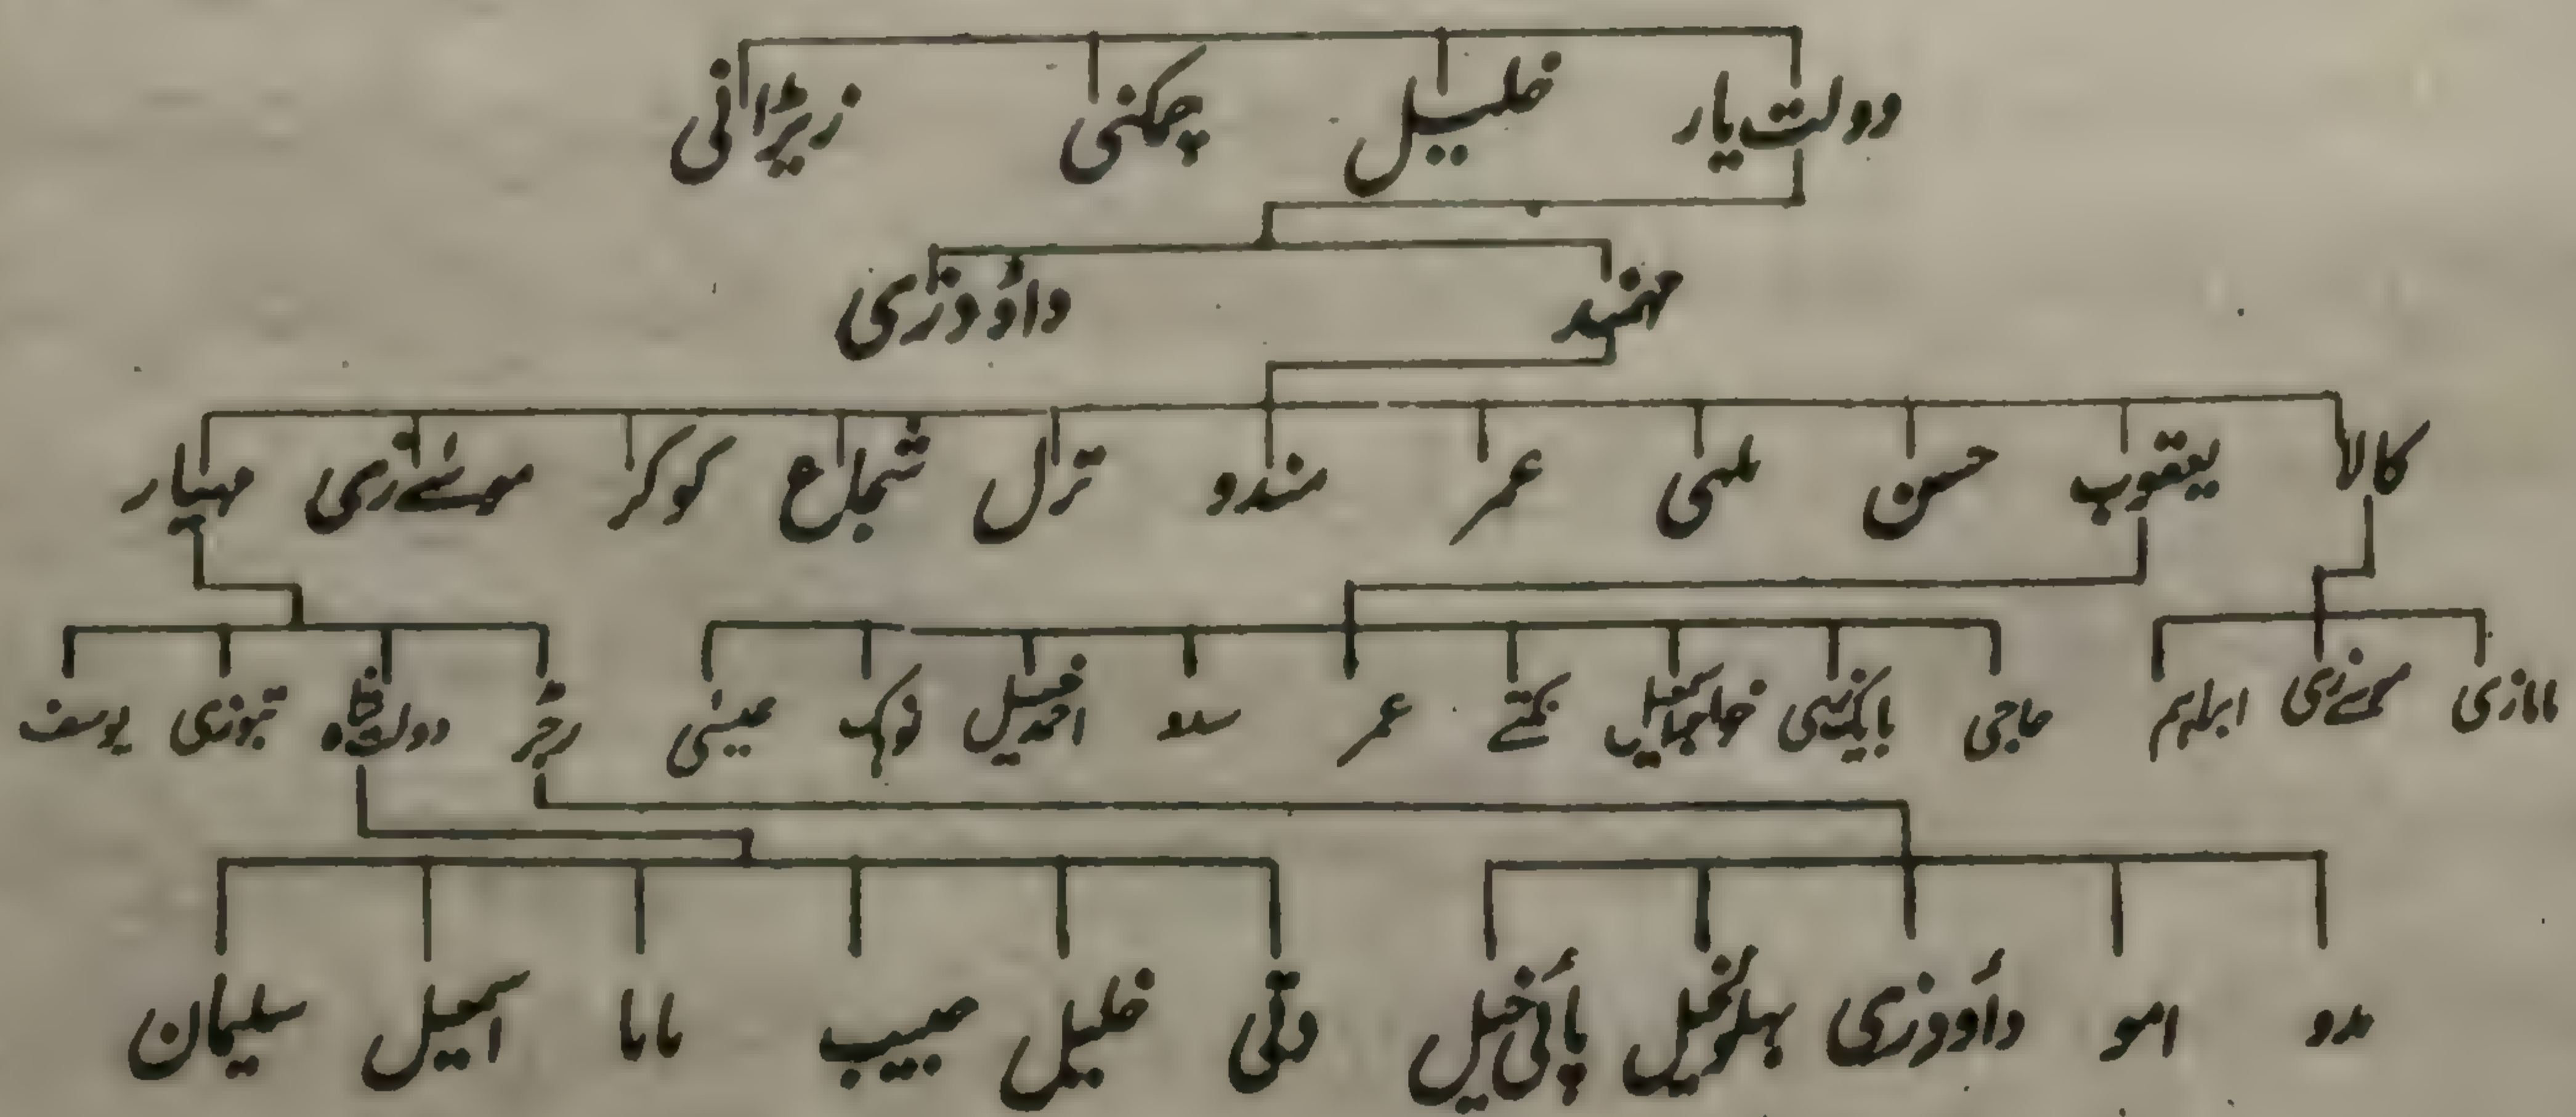 دولت یار خلیل چمکنی زیڑانی
مہمند داؤدزی
کالا یعقوب حسن ملہی عمر مندو ترل شجاع کوکر موسےٰ زی مہیار
امازی موسےٰ زی ابراہیم حاجی عمر سدو احمد خیل عیسٰی رجڑ دولت خاہ یوسف
مدو امو داؤدزی بہلول خیل پائی خیل دتی خلیل حبیب ماما اسمٰعیل سلیمان